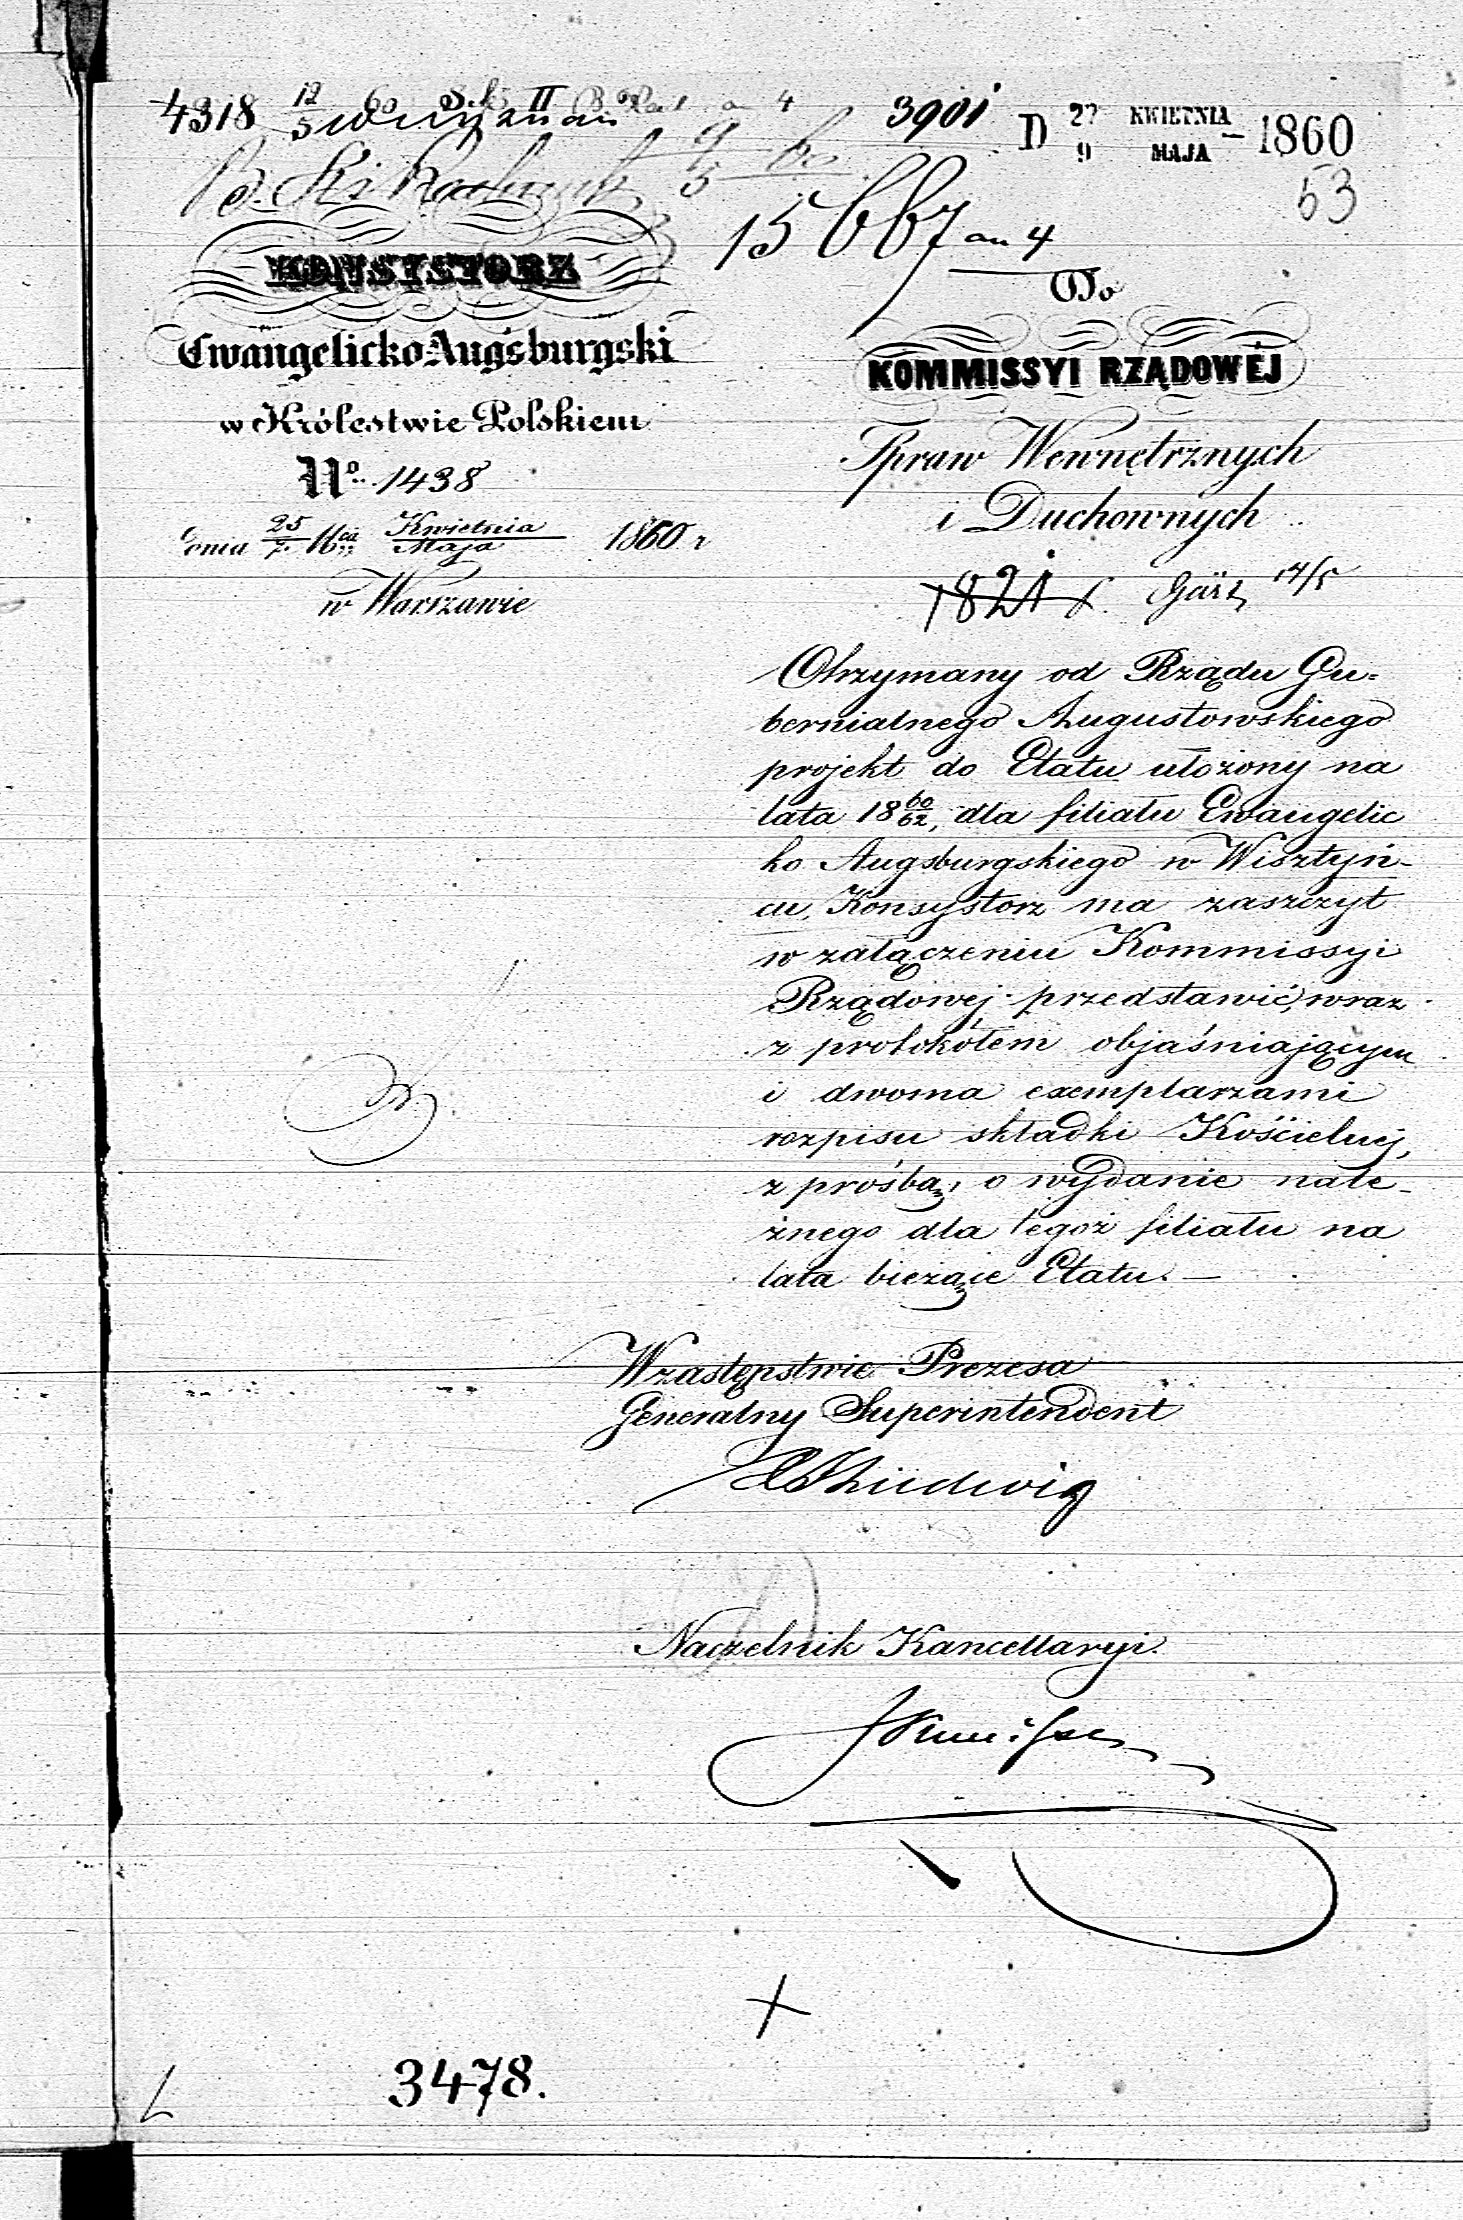 4318 12/5 60 II 4
3901
D 27/9 KWIETNIA/MAJA - 1860
53
9/5 60
15667 an 4
KONSYSTORZ
Ewangelicko-Augsburgski
w Królestwie Polskiem
No. 1438
dnia 25/7 Mca Kwietnia/Maja 1860 r
w Warszawie
Do
KOMMISSYI RZĄDOWÉJ
Spraw Wewnętrznych
i Duchownych
1821 14/5
Otrzymany od Rządu Gu=
bernialnego Augustowskiego
projekt do Etatu ułożony na
lata 18 60/62, dla filiału Ewangelic
ko Augsburgskiego w Wisztyń-
cu, Konsystorz ma zaszczyt
w załączeniu Kommissyi
Rządowéj przedstawić, wraz
z protokółem objaśniającym
i dwoma exemplarzami
rozpisu składki Kościelnej,
z prośbą, o wydanie nale-
żnego dla tegoż filiału na
lata bieżące Etatu. —
W zastępstwie Prezesa
Generalny Superintendent
Ludwig
Naczelnik Kancellaryi
3478.